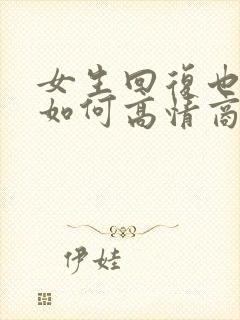 女生回復也
如何高情商
伊娃